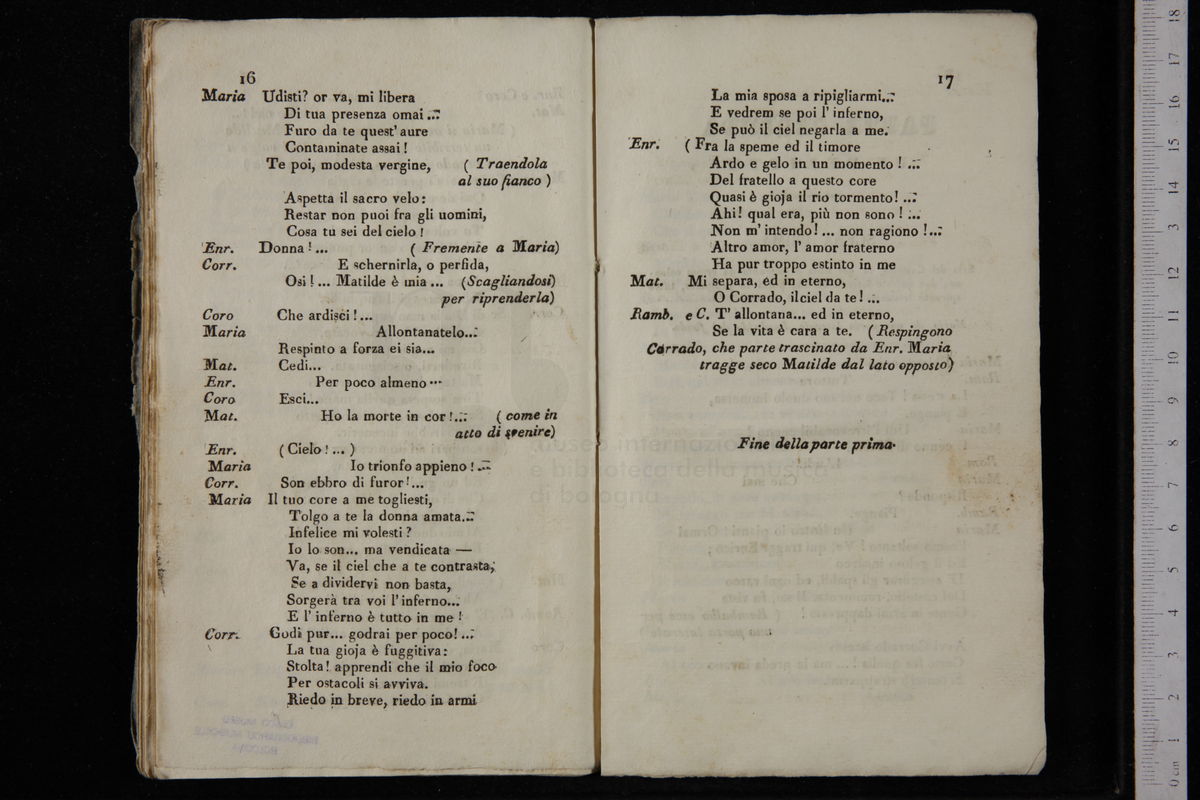 16
Maria Udisti? or va, mi libera
Di tua presenza omai ...
Furo da te quest' aure
Contaminate assai !
Te poi, modesta vergine, ( Traendola
al suo fianco )
Aspetta il sacro velo:
Restar non puoi fra gli uomini,
Cosa tu sei del cielo !
Enr. Donna ! ... ( Fremente a Maria)
Corr. E schernirla, o perfida,
Osi ! ... Matilde è mia ... (Scagliandosi)
per riprenderla)
Coro Che ardisci ! ...
Maria Allontanatelo...
Respinto a forza ei sia...
Mat. Cedi...
Enr. Per poco almeno ...
Coro Esci...
Mat. Ho la morte in cor !... ( come in
atto di svenire)
Enr. ( Cielo ! ... )
Maria Io trionfo appieno ! ...
Corr. Son ebbro di furor ! ...
Maria Il tuo core a me togliesti,
Tolgo a te la donna amata...
Infelice mi volesti ?
Io lo son... ma vendicata —
Va, se il ciel che a te contrasta,
Se a dividervi non basta,
Sorgerà tra voi l' inferno...
E l' inferno è tutto in me !
Corr. Godi pur... godrai per poco! ...
La tua gioja è fuggitiva:
Stolta! apprendi che il mio foco
Per ostacoli si avviva.
Riedo in breve, riedo in armi
17
La mia sposa a ripigliarmi...
E vedrem se poi l' inferno,
Se può il ciel negarla a me.
Enr. ( Fra la speme ed il timore
Ardo e gelo in un momento ! ...
Del fratello a questo core
Quasi è gioja il rio tormento! ...
Ahi! qual era, più non sono ! ...
Non m' intendo! ... non ragiono ! ...
Altro amor, l' amor fraterno
Ha pur troppo estinto in me
Mat. Mi separa, ed in eterno,
O Corrado, il ciel da te ! ...
Ramb. e C. T' allontana... ed in eterno,
Se la vita è cara a te. ( Respingono
Corrado, che parte trascinato da Enr. Maria
tragge seco Matilde dal lato opposto)
Fine della parte prima.
museo internazionale
e biblioteca della musica
di bologna